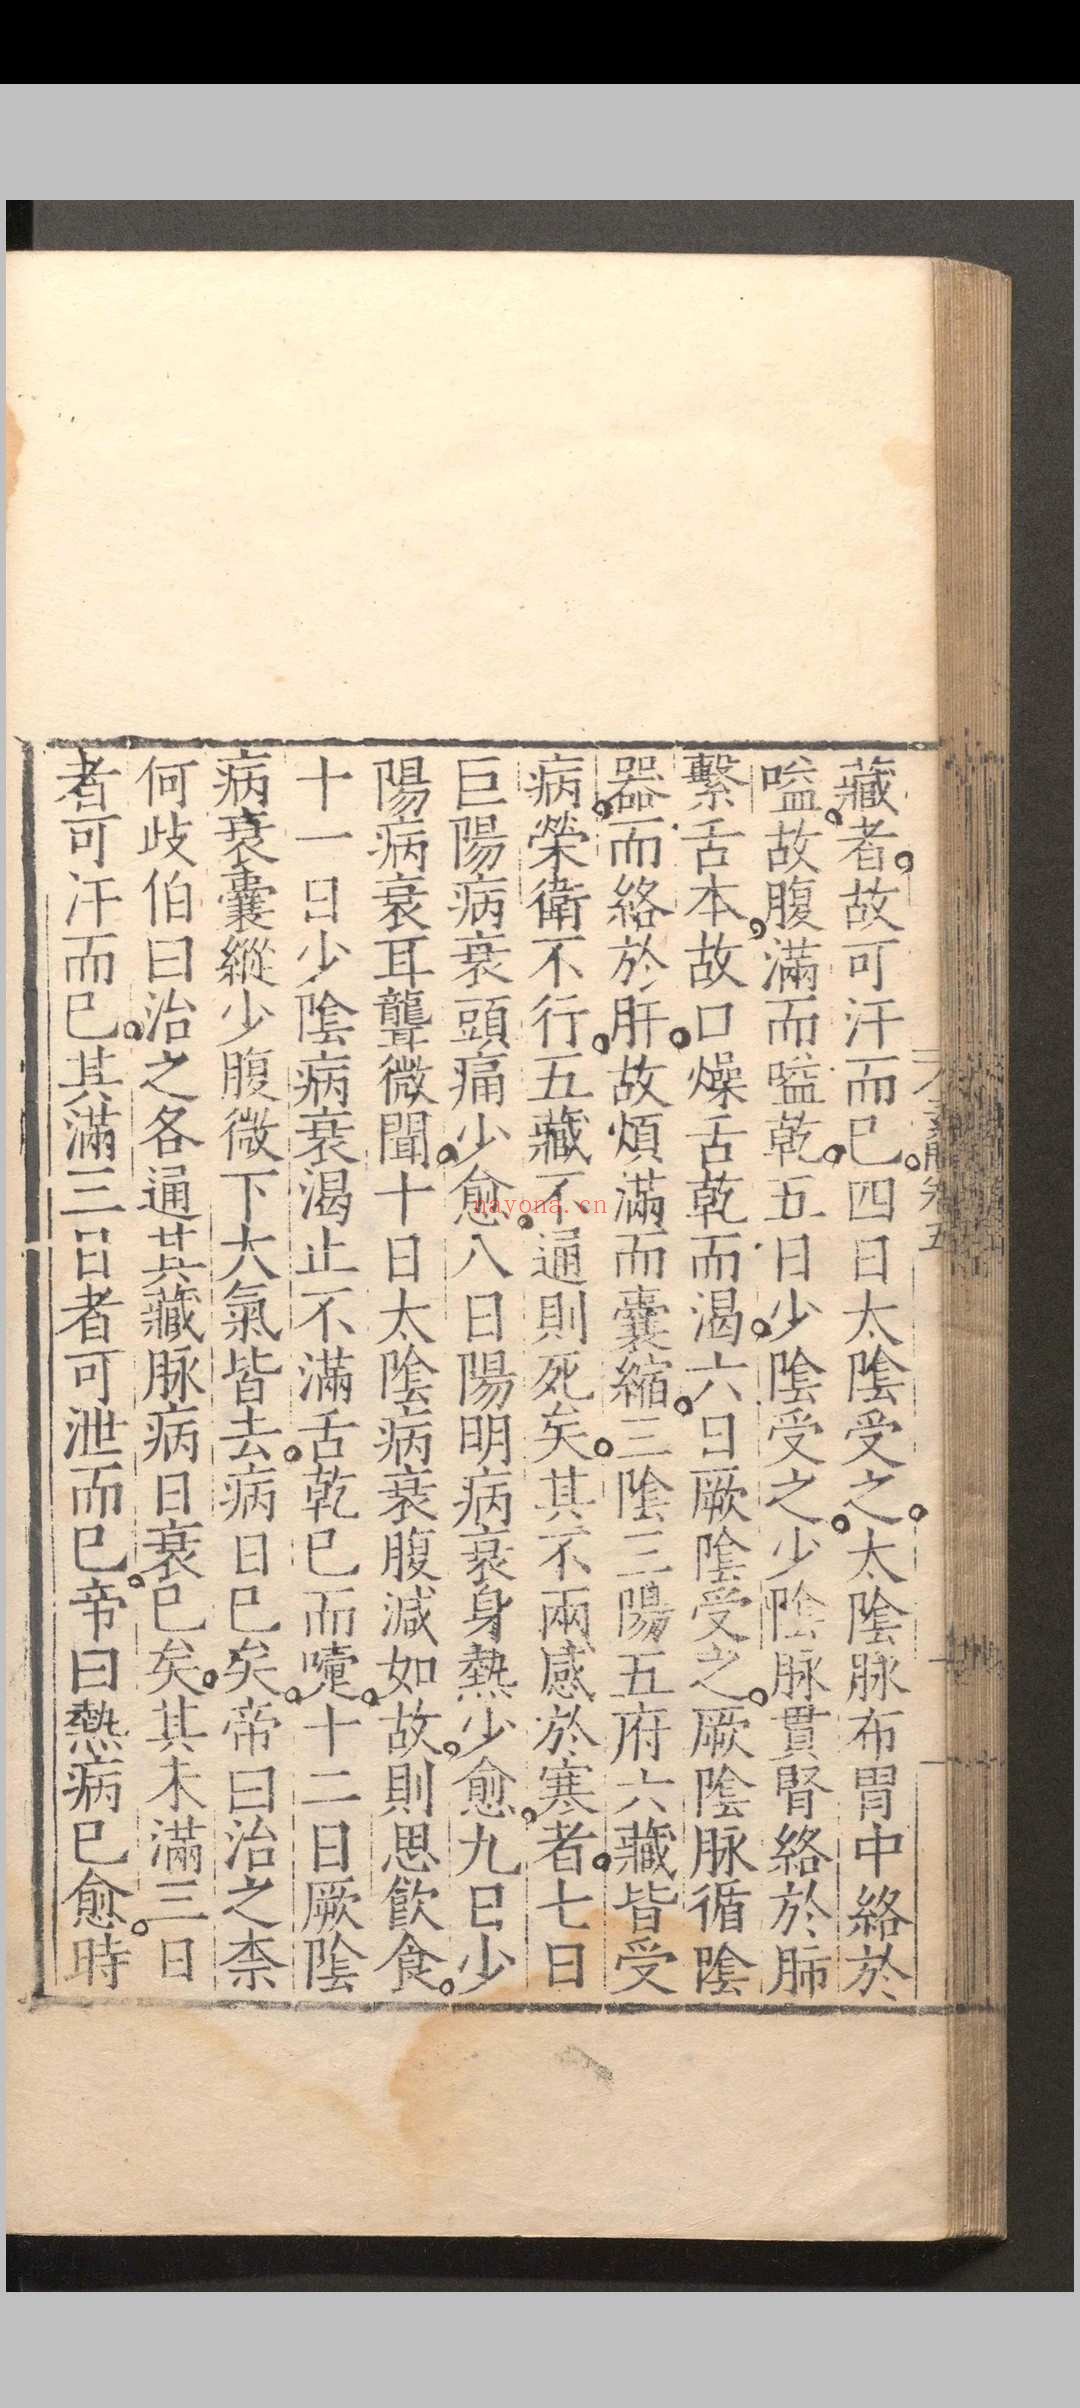 藏者故可汗而已四日太陰受之太陰脉布胃中絡於
嗌故腹滿而嗌乾五日少陰受之少陰脉貫腎絡於肺
繫舌本故口燥舌乾而渴六日厥陰受之厥陰脉循陰
器而絡於肝故煩滿而囊縮三陰三陽五府六藏皆受
病榮衛不行五藏不通則死矣其不兩感於寒者七日
巨陽病衰頭痛少愈八日陽明病衰身熱少愈九日少
陽病衰耳聾微聞十日太陰病衰腹減如故則思飲食
十一日少陰病衰渴止不滿舌乾已而嚏十二日厥陰
病衰囊縱少腹微下大氣皆去病日已矣帝曰治之柰
何歧伯曰治之各通其藏脉病日衰已矣其未滿三日
者可汗而已其滿三日者可泄而已帝曰熱病已愈時
nayona.cn